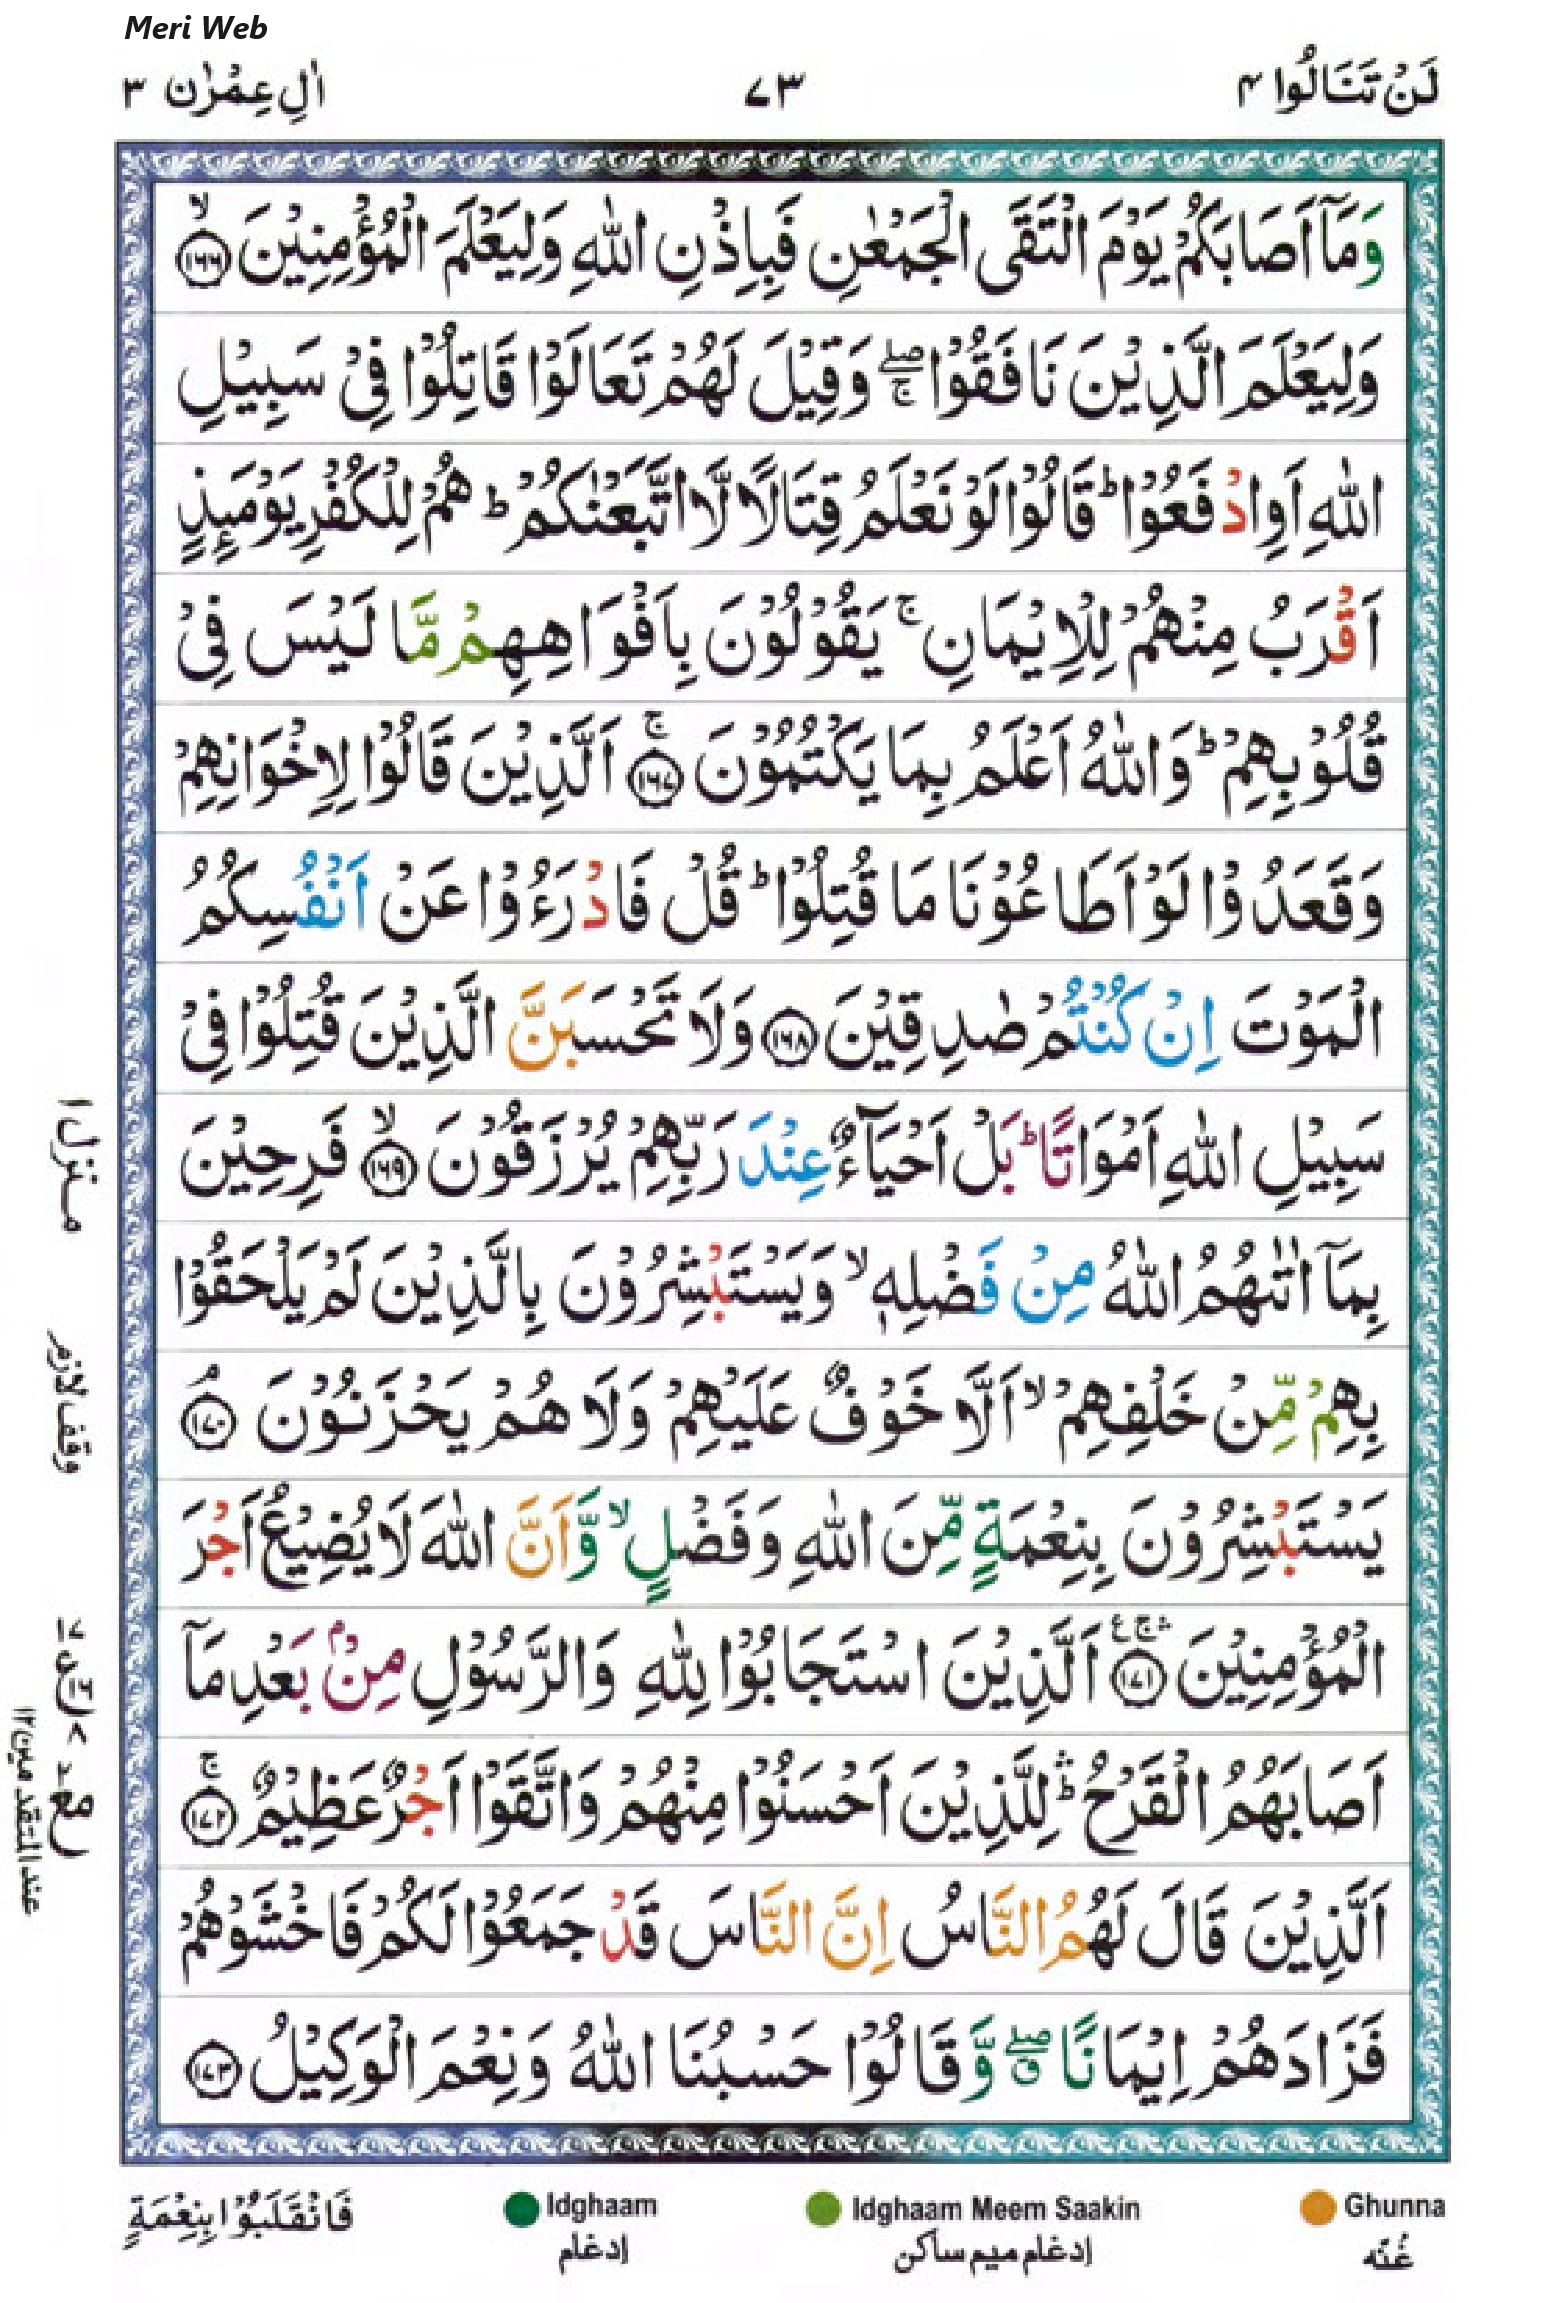 Meri Web
لَنْ تَنَالُوا ۴
۷۳
اٰلِ عِمْرٰن ۳
وَمَآ اَصَابَكُمْ يَوْمَ الْتَقَى الْجَمْعٰنِ فَبِاِذْنِ اللّٰهِ وَلِيَعْلَمَ الْمُؤْمِنِيْنَ ۙ﴿۱۶۶﴾
وَلِيَعْلَمَ الَّذِيْنَ نَافَقُوْا ۖۚ وَقِيْلَ لَهُمْ تَعَالَوْا قَاتِلُوْا فِيْ سَبِيْلِ
اللّٰهِ اَوِ ادْفَعُوْا ؕ قَالُوْا لَوْ نَعْلَمُ قِتَالًا لَّا اتَّبَعْنٰكُمْ ؕ هُمْ لِلْكُفْرِ يَوْمَىِٕذٍ
اَقْرَبُ مِنْهُمْ لِلْاِيْمَانِ ۚ يَقُوْلُوْنَ بِاَفْوَاهِهِمْ مَّا لَيْسَ فِيْ
قُلُوْبِهِمْ ؕ وَاللّٰهُ اَعْلَمُ بِمَا يَكْتُمُوْنَ ۚ﴿۱۶۷﴾ اَلَّذِيْنَ قَالُوْا لِاِخْوَانِهِمْ
وَقَعَدُوْا لَوْ اَطَاعُوْنَا مَا قُتِلُوْا ؕ قُلْ فَادْرَءُوْا عَنْ اَنْفُسِكُمُ
الْمَوْتَ اِنْ كُنْتُمْ صٰدِقِيْنَ ﴿۱۶۸﴾ وَلَا تَحْسَبَنَّ الَّذِيْنَ قُتِلُوْا فِيْ
سَبِيْلِ اللّٰهِ اَمْوَاتًا ؕ بَلْ اَحْيَآءٌ عِنْدَ رَبِّهِمْ يُرْزَقُوْنَ ۙ﴿۱۶۹﴾ فَرِحِيْنَ
بِمَآ اٰتٰىهُمُ اللّٰهُ مِنْ فَضْلِهٖ ۙ وَيَسْتَبْشِرُوْنَ بِالَّذِيْنَ لَمْ يَلْحَقُوْا
بِهِمْ مِّنْ خَلْفِهِمْ ۙ اَلَّا خَوْفٌ عَلَيْهِمْ وَلَا هُمْ يَحْزَنُوْنَ ۘ﴿۱۷۰﴾
يَسْتَبْشِرُوْنَ بِنِعْمَةٍ مِّنَ اللّٰهِ وَفَضْلٍ ۙ وَّاَنَّ اللّٰهَ لَا يُضِيْعُ اَجْرَ
الْمُؤْمِنِيْنَ ۛۚ ع﴿۱۷۱﴾ اَلَّذِيْنَ اسْتَجَابُوْا لِلّٰهِ وَالرَّسُوْلِ مِنْۢ بَعْدِ مَآ
اَصَابَهُمُ الْقَرْحُ ۛؕ لِلَّذِيْنَ اَحْسَنُوْا مِنْهُمْ وَاتَّقَوْا اَجْرٌ عَظِيْمٌ ۚ﴿۱۷۲﴾
اَلَّذِيْنَ قَالَ لَهُمُ النَّاسُ اِنَّ النَّاسَ قَدْ جَمَعُوْا لَكُمْ فَاخْشَوْهُمْ
فَزَادَهُمْ اِيْمَانًا ۖق وَّقَالُوْا حَسْبُنَا اللّٰهُ وَنِعْمَ الْوَكِيْلُ ﴿۱۷۳﴾
منزل ۱
وقف لازم
فَانْقَلَبُوْا بِنِعْمَةٍ
Idghaam
إدغام
Idghaam Meem Saakin
إدغام ميم ساكن
Ghunna
غُنّه